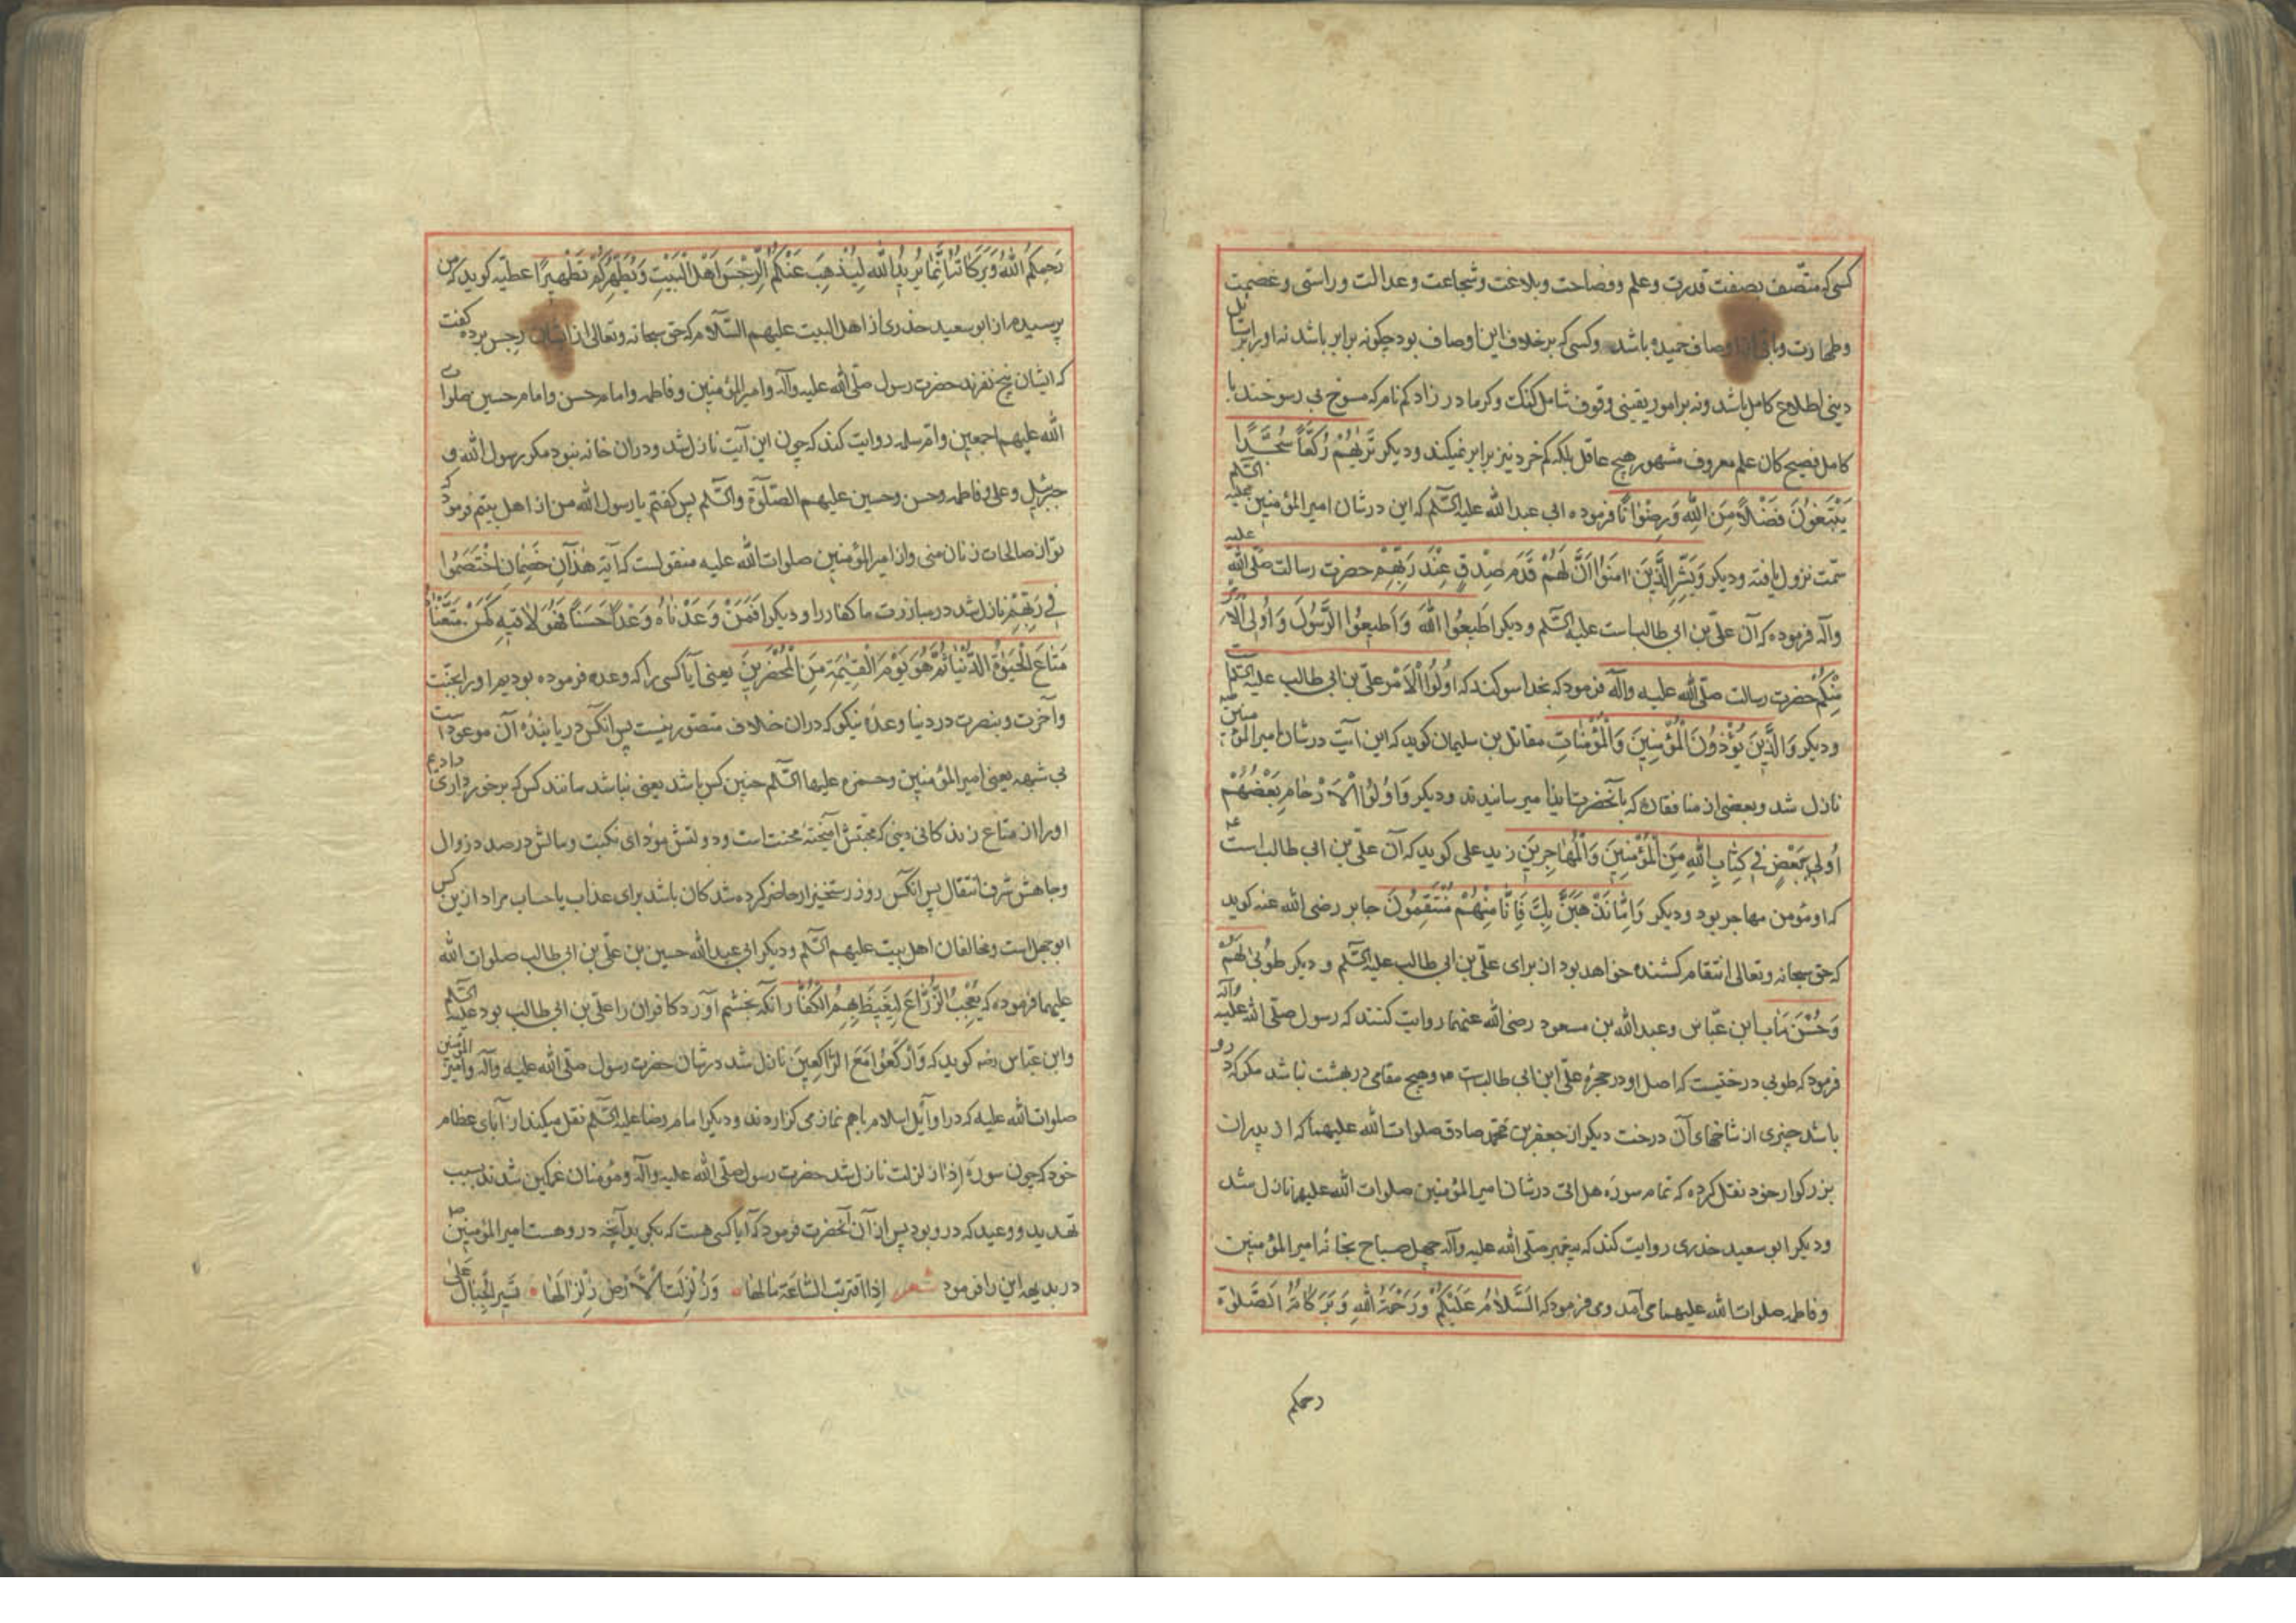 کسی که متّصف بصفت قدرت و علم و فصاحت و بلاغت و شجاعت و عدالت و راستی و عصمت
و طهارت و باقی اوصاف حمیده باشد و کسی که بر خلاف این اوصاف بود چگونه برابر باشد نه او را بر
دینی اطلاع کامل باشد و نه بر امور یقینی وقوف شامل کنک و کر مادر زاد کم نام که
کامل فصیح کان علم معروف مشهور هیچ عاقل بلکه کم خرد نیز برابر نمیکند و دیکر تَرٰیهُمْ رُکَّعاً سُجَّدًا
یَبْتَغُونَ فَضْلاً مِنَ اللّٰهِ وَرِضْوٰانًا فرموده ابی عبد الله علیه السّلم که این در شان امیر المؤمنین علیه السّلم
سمت نزول یافته و دیکر وَبَشِّرِ الَّذِینَ اٰمَنُوا اَنَّ لَهُمْ قَدَمَ صِدْقٍ عِنْدَ رَبِّهِمْ حضرت رسالت صلّی الله علیه
وآله فرموده که آن علی بن ابی طالب است علیه السّلم و دیکر اَطیعُوا اللّٰهَ وَاَطیعُوا الرَّسُولَ وَاُولِی الْاَمْرِ
مِنْکُمْ حضرت رسالت صلّی الله علیه وآله فرمود که بخدا سوکند که اُولُوا الْاَمْر علی بن ابی طالب علیه السّلم است
و دیکر وَالَّذِینَ یُؤْذُونَ الْمُؤْمِنِینَ وَالْمُؤْمِنٰاتِ مقاتل بن سلیمان کوید که این آیت در شان امیر المؤمنین
نازل شد و بعضی از منافقان که بآنحضرت ایذا میرسانیدند و دیکر وَاُولُوا الْاَرْحٰامِ بَعْضُهُمْ
اَوْلیٰ بِبَعْضٍ فی کِتٰابِ اللّٰهِ مِنَ الْمُؤْمِنِینَ وَالْمُهٰاجِرِینَ زید علی کوید که آن علی بن ابی طالب است
که او مؤمن مهاجر بود و دیکر فَاِمّٰا نَذْهَبَنَّ بِکَ فَاِنّٰا مِنْهُمْ مُنْتَقِمُونَ جابر رضی الله عنه کوید
که حق سبحانه و تعالی انتقام کشنده خواهد بود از برای علی بن ابی طالب علیه السّلم و دیکر طُوبیٰ لَهُمْ
وَحُسْنُ مَاٰب ابن عبّاس و عبدالله بن مسعود رضی الله عنهما روایت کنند که رسول صلّی الله علیه وآله
فرمود که طوبی درختیست که اصل او در حجرهٔ علی ابن ابی طالب است و هیچ مقامی در بهشت نباشد مکر که درو
باشد چیزی از شاخهای آن درخت دیکر از جعفر بن محمّد صادق صلوات الله علیهما که از پدران
بزرکوار خود نقل کرده که تمام سورهٔ هل اتی در شان امیر المؤمنین صلوات الله علیها نازل شد
و دیکر ابو سعید خذری روایت کند که پیغمبر صلّی الله علیه وآله چهل صباح بخانهٔ امیر المؤمنین
و فاطمه صلوات الله علیهما می آمد و می فرمود که اَلسَّلٰامُ عَلَیْکُمْ وَرَحْمَةُ اللّٰهِ وَبَرَکٰاتُهُ اَلصَّلٰوة
رحمکم
رَحِمَکُمُ اللّٰهُ وَبَرَکٰاتُهُ اِنَّمٰا یُرِیدُ اللّٰهُ لِیُذْهِبَ عَنْکُمُ الرِّجْسَ اَهْلَ الْبَیْتِ وَیُطَهِّرَکُمْ تَطْهیرًا عطیّه کوید که من
پرسیدم از ابو سعید خذری از اهل البیت علیهم السّلام که حق سبحانه و تعالی از ایشان رجس برده گفت
که ایشان پنج نفرند حضرت رسول صلّی الله علیه وآله و امیر المؤمنین و فاطمه و امام حسن و امام حسین صلوات
الله علیهم اجمعین و امّ سلمه روایت کند که چون این آیت نازل شد و در آن خانه نبود مکر رسول الله و
جبرئیل و علی و فاطمه و حسن و حسین علیهم الصّلٰوة والسّلم پس کفتم یا رسول الله من از اهل بیتم فرمود که
تو از صالحات زنان منی و از امیر المؤمنین صلوات الله علیه منقولست که آیه هٰذٰانِ خَصْمٰانِ اخْتَصَمُوا
فی رَبِّهِمْ نازل شد در مبارزت ما کفار را و دیکر اَفَمَنْ وَعَدْنٰاهُ وَعْدًا حَسَنًا فَهُوَ لٰاقیهِ کَمَنْ مَتَّعْنٰاهُ
مَتٰاعَ الْحَیٰوةِ الدُّنْیٰا ثُمَّ هُوَ یَوْمَ الْقِیٰمَةِ مِنَ الْمُحْضَرِینَ یعنی آیا کسی را که وعده فرموده بودیم او را بجنّت
و آخرت و بنصرت در دنیا وعدهٔ نیکو که در آن خلاف متصور نیست پس آنکس دریابندهٔ آن موعود است
بی شبهه یعنی امیر المؤمنین و حمزه علیهما السّلم چنین کس باشد یعنی نباشد مانند کس که برخورداری دادیم
او را از متاع زندکانی دینی که محبّتش آمیختهٔ محنت است و دولتش مؤدای نکبت و مالش در صدد زوال
و جاهش شرف انتقال پس آنکس روز رستخیز از حاضر کرده شدکان باشد برای عذاب یا حساب مراد ازین کس
ابوجهل است و مخالفان اهل بیت علیهم السّلم و دیکر ابی عبد الله حسین بن علی بن ابی طالب صلوات الله
علیهما فرموده که یُعْجِبُ الزُّرّٰاعَ لِیَغیظَ بِهِمُ الْکُفّٰارَ آنکه بخشم آورد کافران را علی بن ابی طالب بود علیه السّلم
و ابن عبّاس رضه کوید که وَارْکَعُوا مَعَ الرّٰاکِعِینَ نازل شد در شان حضرت رسول صلّی الله علیه وآله و امیر المؤمنین
صلوات الله علیه که در اوآیل اسلام باهم نماز می کزاردند و دیکر امام رضا علیه السّلم نقل میکند از آبای عظام
خود که چون سورهٔ اذا زلزلت نازل شد حضرت رسول صلّی الله علیه وآله و مؤمنان غمکین شدند بسبب
تهدید و وعید که درو بود پس از آن آنحضرت فرمود که آیا کسی هست که بکوید آنچه دروهست امیر المؤمنین
در بدیهه این را فرمود شعر اِذَا اقْتَرَبَتِ السّٰاعَةُ یٰا لَهٰا وَزُلْزِلَتِ الْاَرْضُ زِلْزٰالَهٰا تَسیرُ الْجِبٰالُ عَلیٰ